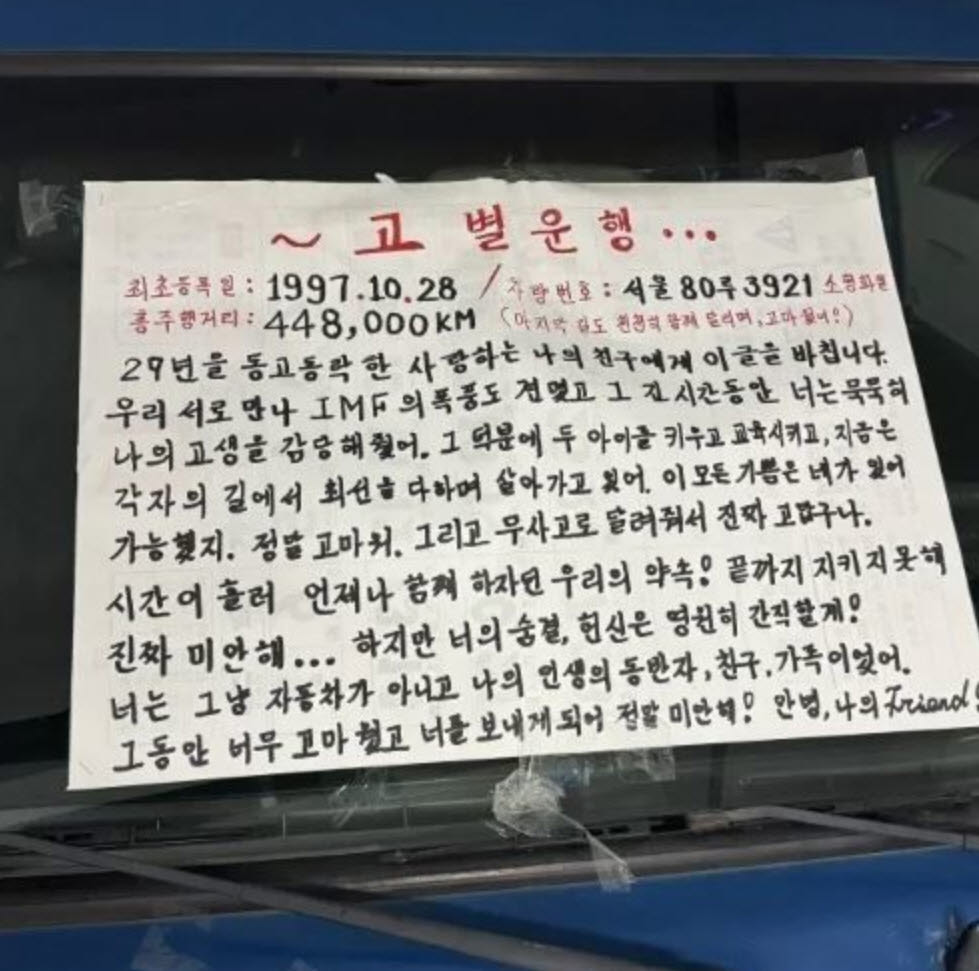 ~ 고 별 운 행 ...
최초등록일 : 1997.10.28 / 차량번호 : 서울 80루 3921 소형화물
총주행거리 : 448,000KM (마지막 길도 천천히 함께 달리며, 고마웠어!)
29년을 동고동락 한 사랑하는 나의 친구에게 이 글을 바칩니다.
우리 서로 만나 IMF의 폭풍도 견뎠고 그 긴 시간동안 너는 묵묵히
나의 고생을 감당해줬어. 그 덕분에 두 아이를 키우고 교육시키고, 지금은
각자의 길에서 최선을 다하며 살아가고 있어. 이 모든 기쁨은 네가 있어
가능했지. 정말 고마워. 그리고 무사고로 달려줘서 진짜 고맙구나.
시간이 흘러 언제나 함께 하자던 우리의 약속! 끝까지 지키지 못해
진짜 미안해... 하지만 너의 숨결, 헌신은 영원히 간직할게!
너는 그냥 자동차가 아니고 나의 인생의 동반자, 친구. 가족이었어.
그동안 너무 고마웠고 너를 보내게 되어 정말 미안해! 안녕, 나의 Friend